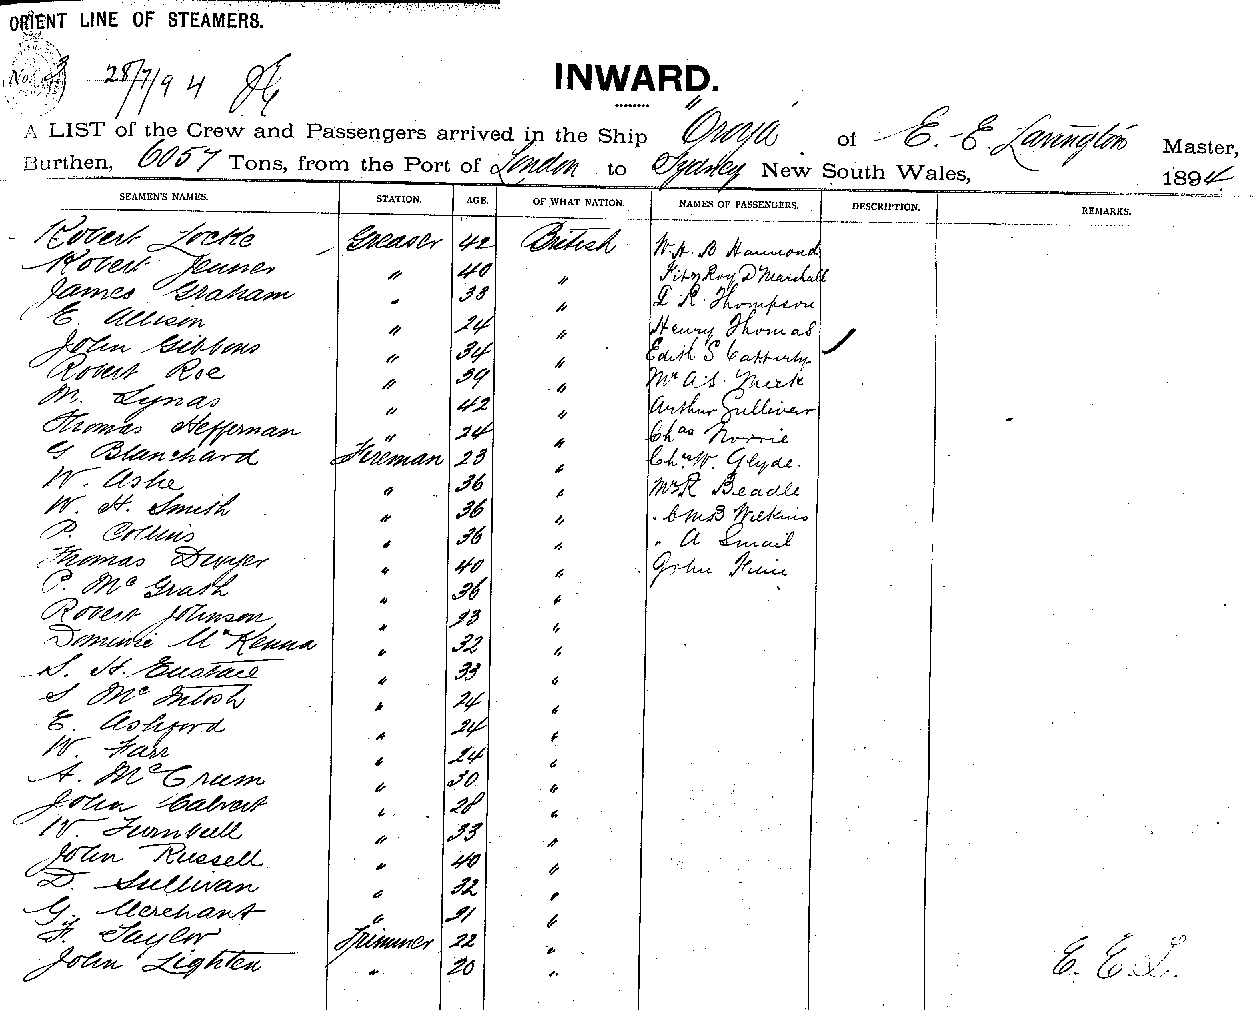 ORIENT LINE OF STEAMERS.
No.
28/7/94
INWARD.
A LIST of the Crew and Passengers arrived in the Ship "Oroya" of E. E. Lavington Master,
Burthen, 6057 Tons, from the Port of London to Sydney New South Wales, 1894
SEAMEN'S NAMES. STATION. AGE. OF WHAT NATION. NAMES OF PASSENGERS. DESCRIPTION. REMARKS.
Robert Locke Greaser 42 British W. H. B Hammond
Robert Jenner " 40 " Fitz Roy D Marshall
James Graham " 38 " R. Thompson
E. Allison " 24 " Henry Thomas
John Gibbons " 34 " Edith S
Robert Roe " 39 " Mr A. S. Meek
M. Lynas " 42 " Arthur Gulliver
Thomas Heffernan " 24 " Chas Norrie
G Blanchard Fireman 23 " Chas W. Glyde.
W. Ashe " 36 " Mr R Beadle
W. H. Smith " 36 " " Wilkins
P. Collins " 36 " " A Smail
Thomas Dwyer " 40 " John
P. Mc Grath " 36 "
Robert Johnson " 23 "
Dominic McKenna " 32 "
S. H. Eustace " 33 "
S Mc Intosh " 24 "
E. Ashford " 24 "
W. Farr " 24 "
A. McCrum " 30 "
John Calvert " 28 "
W. Turnbull " 33 "
John Russell " 40 "
D. Sullivan " 32 "
G. Merchant " 21 "
F. Taylor Trimmer 22 "
John Lighten " 20 " E. E. L.